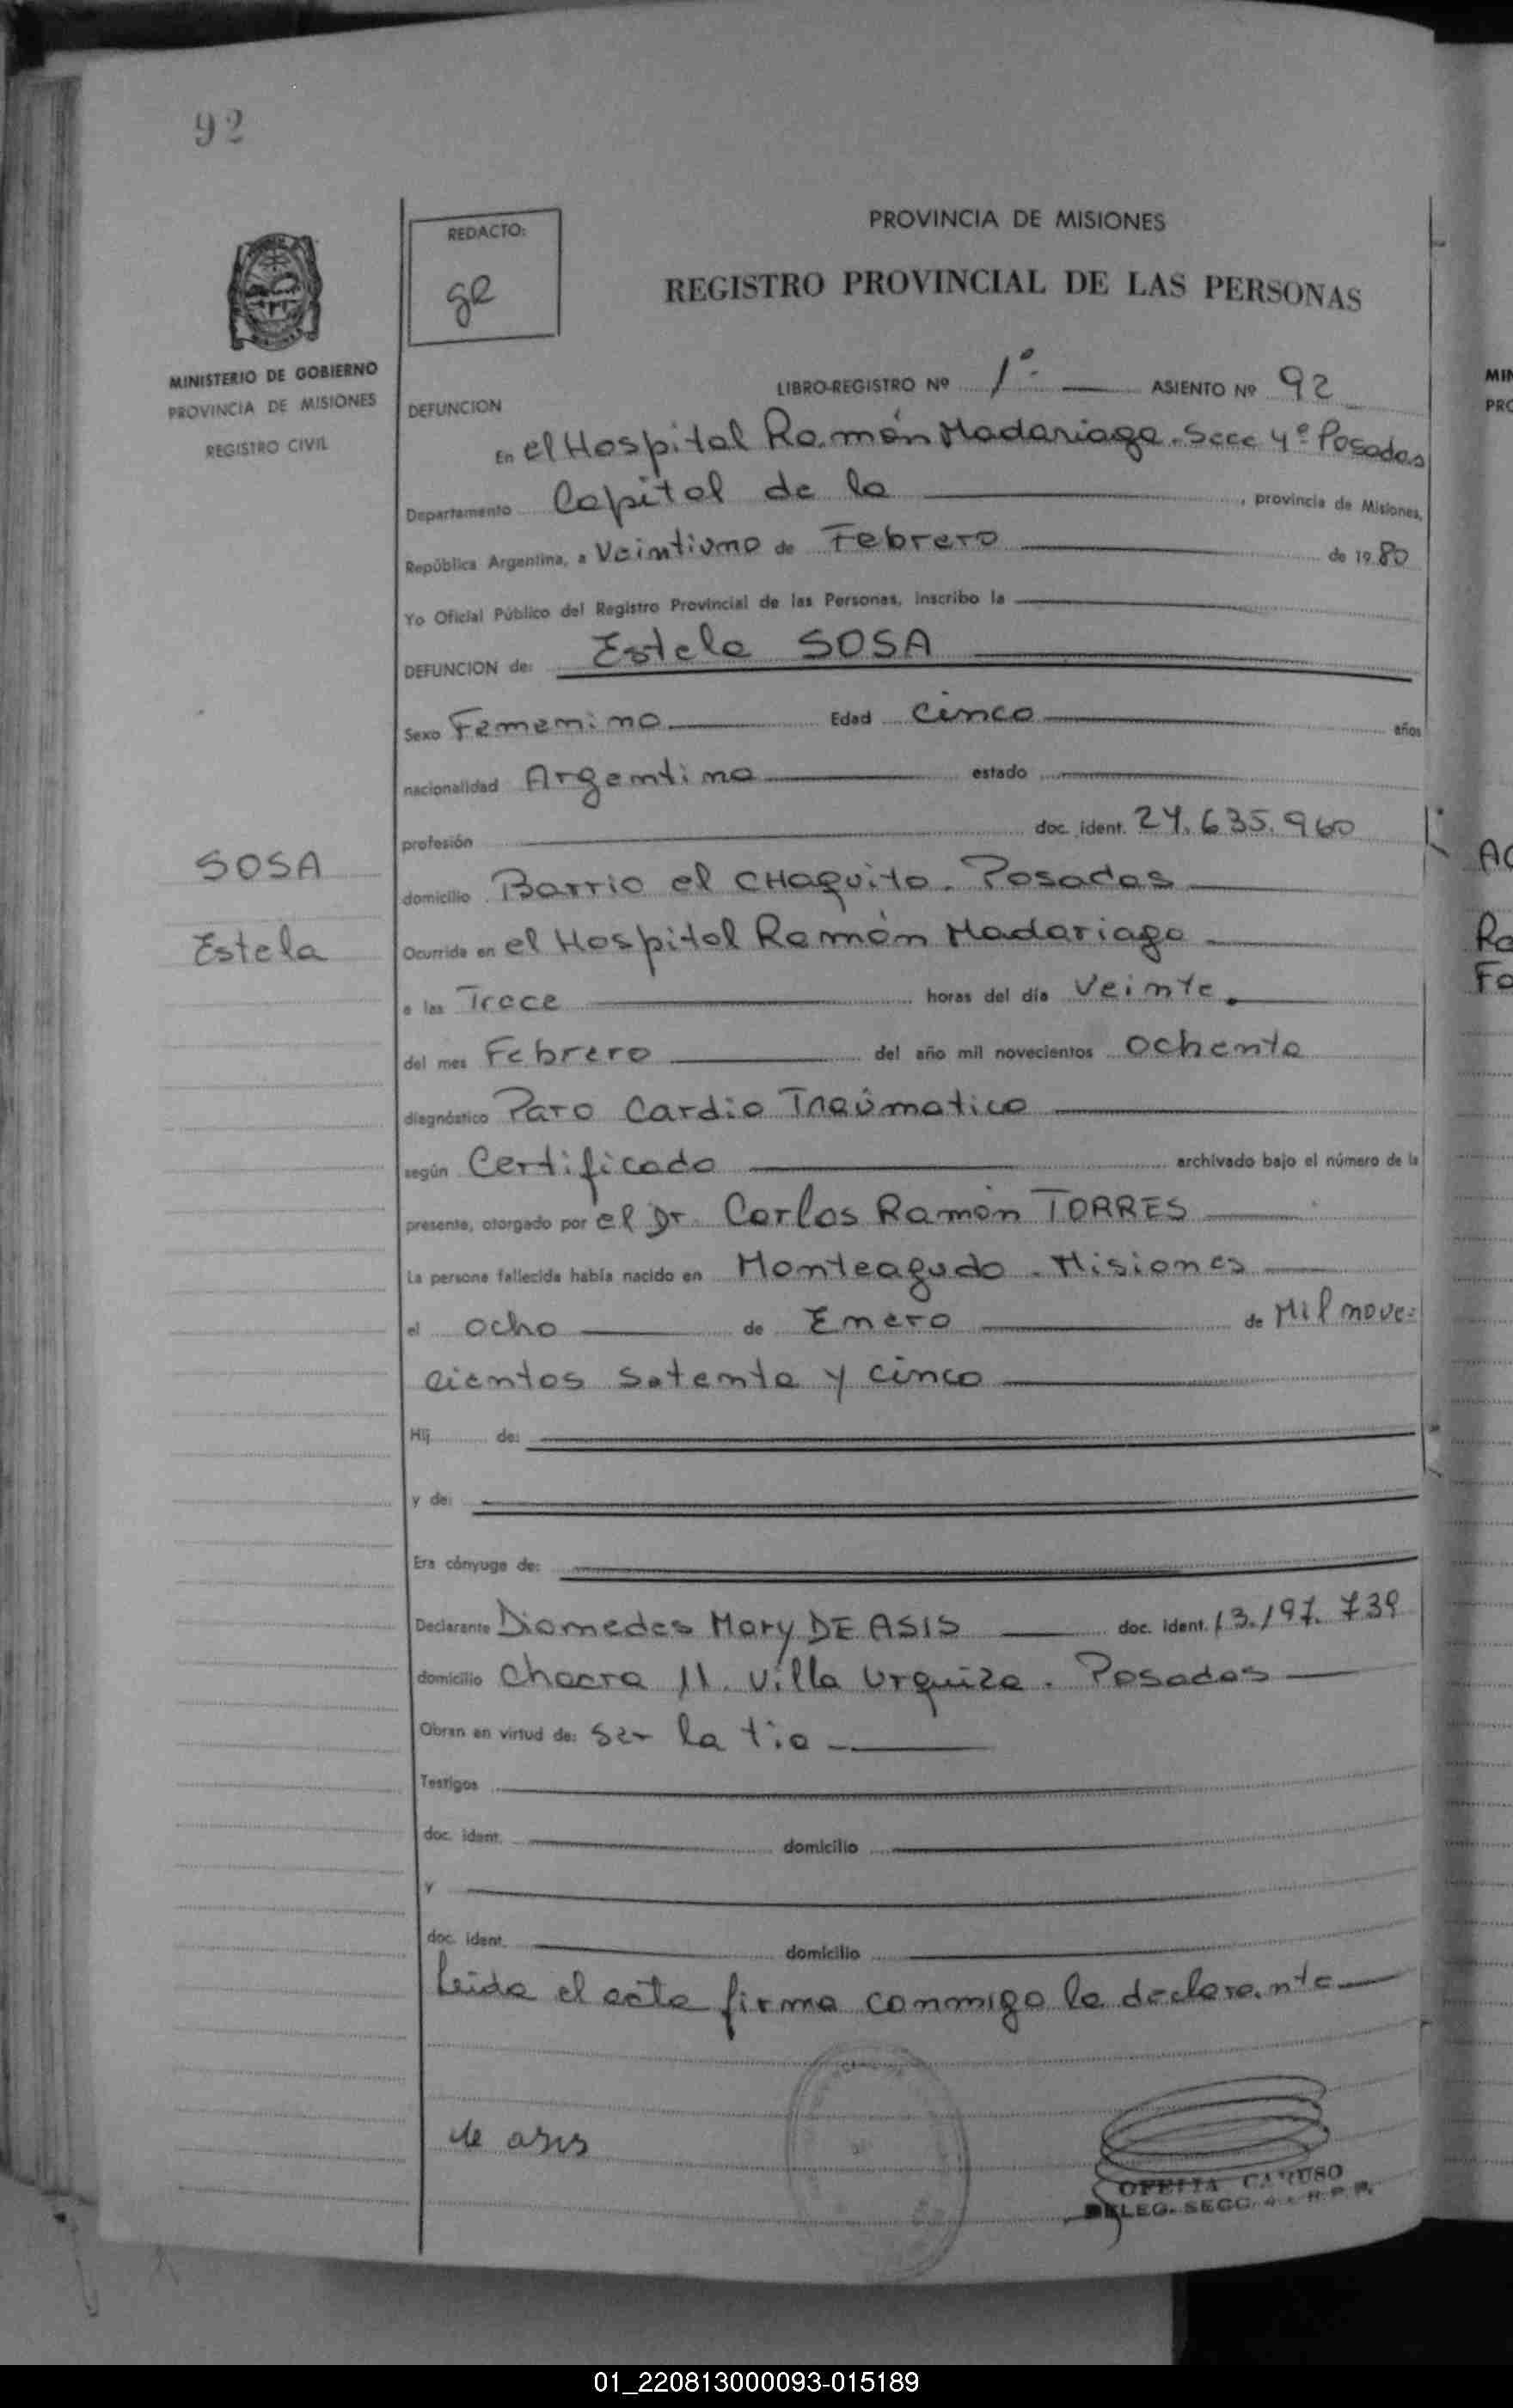 92
REDACTO:
ge
PROVINCIA DE MISIONES
REGISTRO PROVINCIAL DE LAS PERSONAS
MINISTERIO DE GOBIERNO
PROVINCIA DE MISIONES
REGISTRO CIVIL
LIBRO-REGISTRO Nº 1º ASIENTO Nº 92
DEFUNCION
En el Hospital Ramón Madariaga. Secc 4º Posadas
Departamento Capital de la , provincia de Misiones,
República Argentina, a Veintiuno de Febrero de 1980
Yo Oficial Público del Registro Provincial de las Personas, inscribo la
DEFUNCION de: Estela SOSA
Sexo Femenino Edad Cinco años
nacionalidad Argentina estado
profesión doc. ident. 24.635.960
SOSA
Estela
domicilio Barrio el CHaquito. Posadas
Ocurrida en el Hospital Ramón Madariaga
a las Trece horas del día Veinte
del mes Febrero del año mil novecientos Ochenta
diagnóstico Paro Cardio Traúmatico
según Certificado archivado bajo el número de la
presente, otorgado por el Dr. Carlos Ramón TORRES
La persona fallecida había nacido en Monteagudo - Misiones
el Ocho de Enero de Mil nove=
cientos setenta y cinco
Hij de:
y de:
Era cónyuge de:
Declarante Diomedes Mary DE ASIS doc. ident. 13.197.739
domicilio Chacra 11. Villa Urquiza. Posadas
Obran en virtud de: Ser la tia
Testigos
doc. ident. domicilio
y
doc. ident. domicilio
Leida el acta firma conmigo la declarante
de asis
OFELIA CARUSO
DELEG. SECC. 4a R.P.P.
MIN
PRO
AC
Ra
Fa
01_220813000093-015189